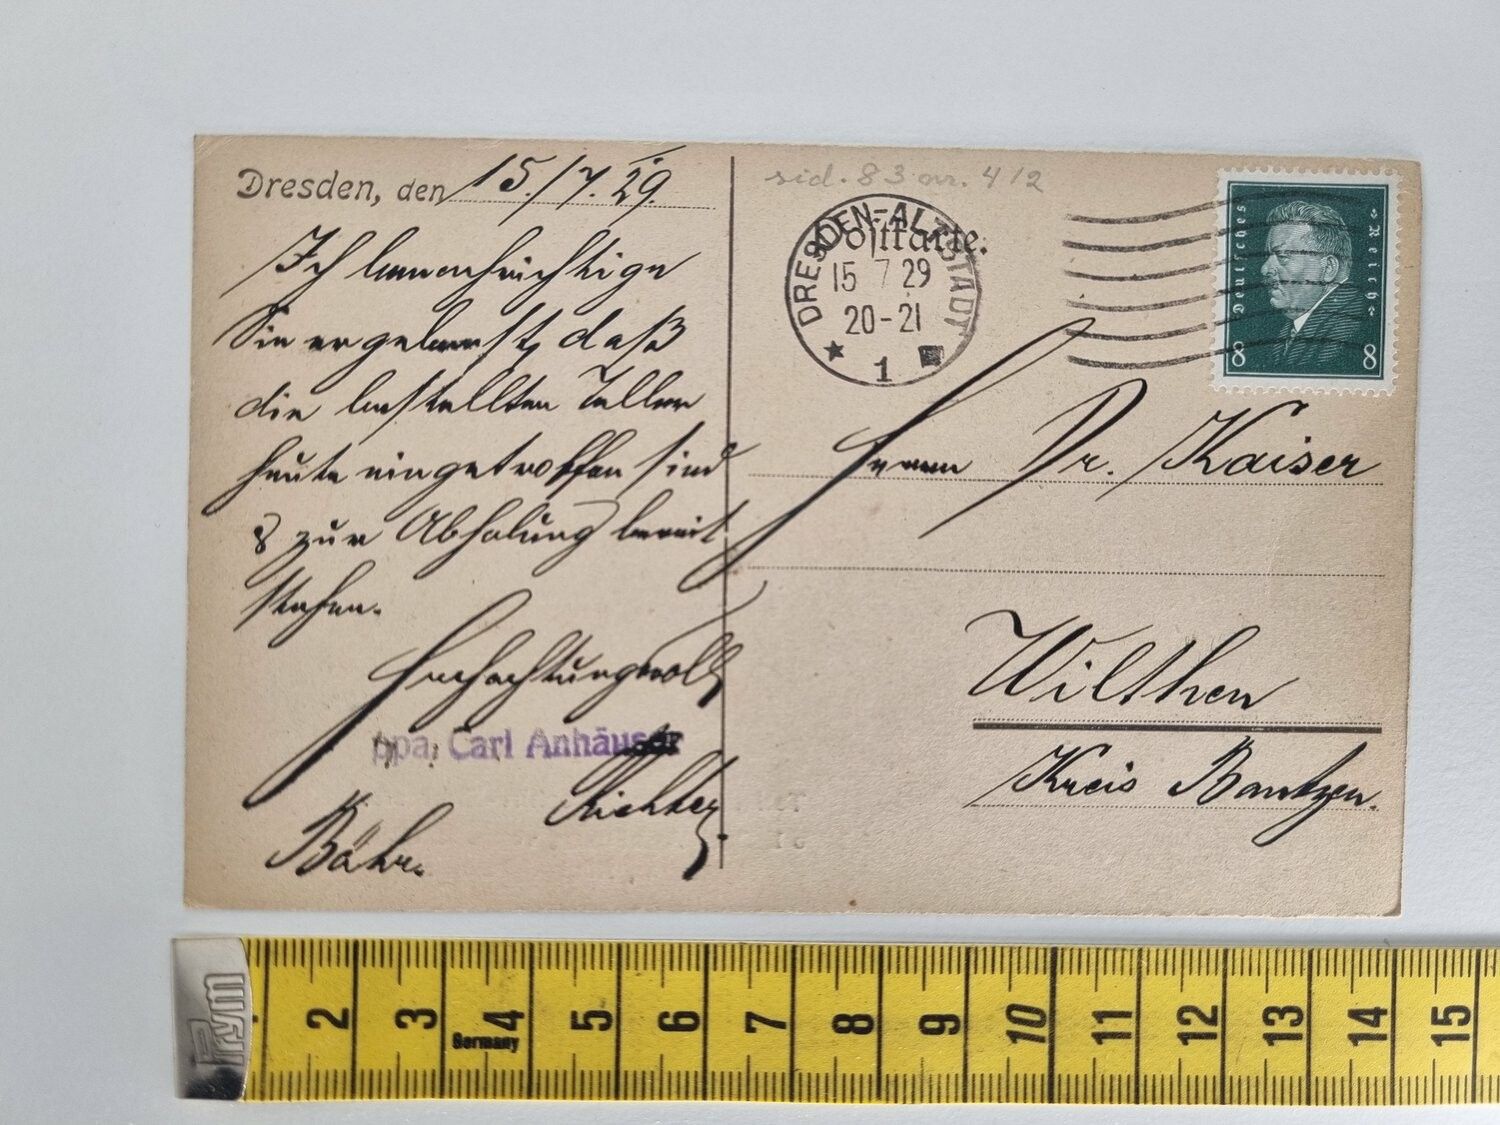 Dresden, den 15./7. 29.
Ich benachrichtige
Sie ergebenst, daß
die bestellten Teller
heute eingetroffen sind
& zur Abholung bereit
stehen.
Hochachtungsvoll
ppa. Carl Anhäuser
Richter
Bähr.
sid. 83 nr. 412
Postkarte.
DRESDEN-ALTSTADT
15 7 29
20-21
1
Deutsches
Reich
8 8
Herrn Dr. Kaiser
Wilthen
Kreis Bautzen.
Prym
2 3 4 5 6 7 8 9 10 11 12 13 14 15
Germany